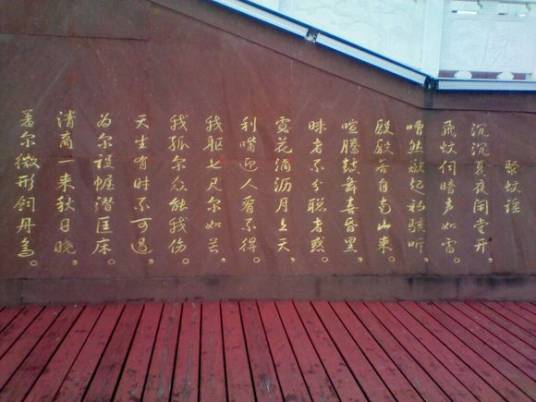 聚蚊谣
沉沉夏夜闲堂开。
飞蚊伺暗声如雷。
嘈然欻起初骇听。
殷殷若自南山来。
喧腾鼓舞喜昏黑。
昧者不分聪者惑。
露花滴沥月上天。
利嘴迎人著不得。
我躯七尺尔如芒。
我孤尔众能我伤。
天生有时不可遏。
为尔设幄潜匡床。
清商一来秋日晓。
羞尔微形饲丹鸟。